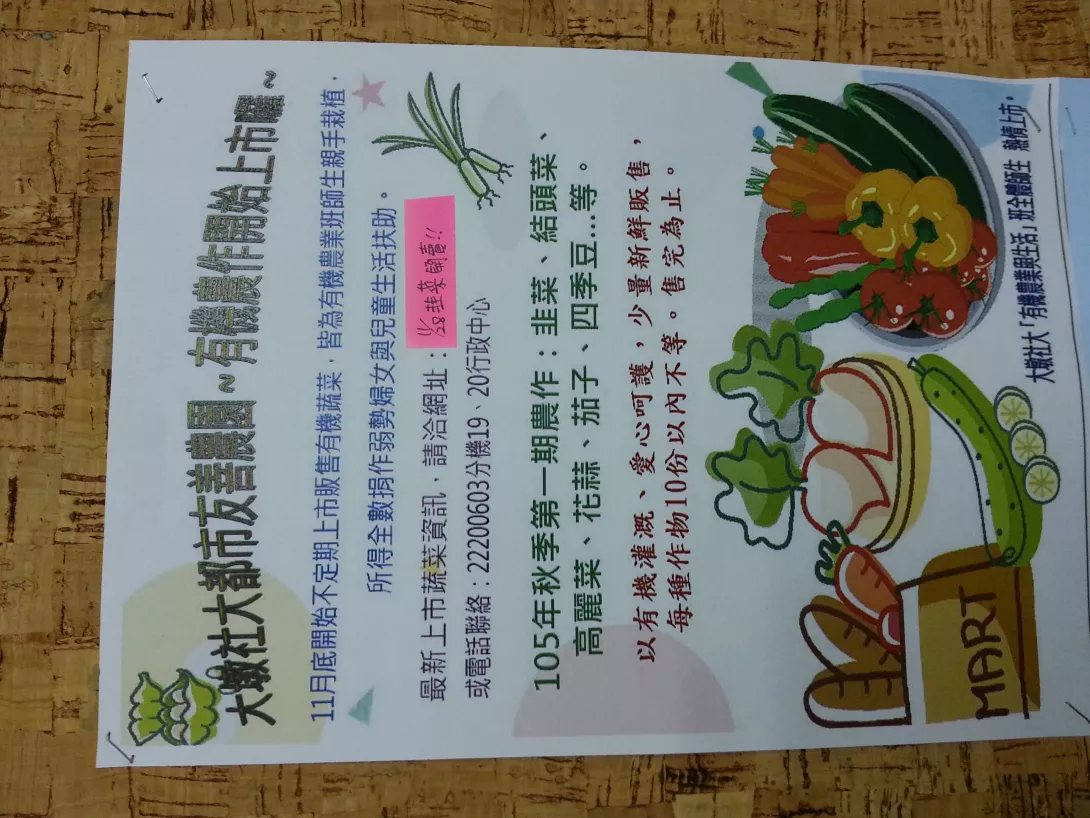 大墩社大都市友善農園~有機農作開始上市囉~
11月底開始不定期上市販售有機蔬菜，皆為有機農業班師生親手栽植，
所得全數捐作弱勢婦女與兒童生活扶助。
最新上市蔬菜資訊，請洽網址：
11/28韭菜開賣!!
或電話聯絡：22200603分機19、20行政中心
105年秋季第一期農作：韭菜、結頭菜、
高麗菜、花蒜、茄子、四季豆...等。
以有機灌溉、愛心呵護，少量新鮮販售，
每種作物10份以內不等。售完為止。
MART
大墩社大「有機農業與生活」班全體師生 熱情上市。